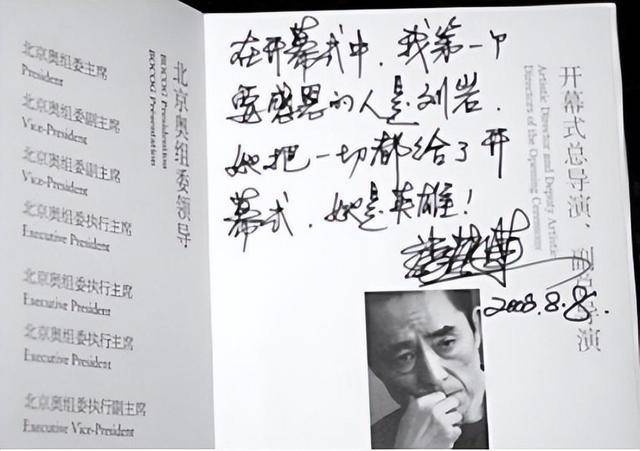 北京奥组委主席
President
北京奥组委副主席
Vice-President
北京奥组委副主席
Vice-President
北京奥组委执行主席
Executive President
北京奥组委执行主席
Executive President
北京奥组委执行主席
Executive President
北京奥组委执行副主席
Executive Vice-President
北京奥组委领导
BOCOG Presidential
BOCOG Presentation
在开幕式中，我第一个
要感恩的人是刘岩．
她把一切都给了开
幕式，她是英雄！
2008.8.8.
开幕式总导演、副总导演
Artistic Director and Deputy Artistic
Directors of the Opening Ceremony